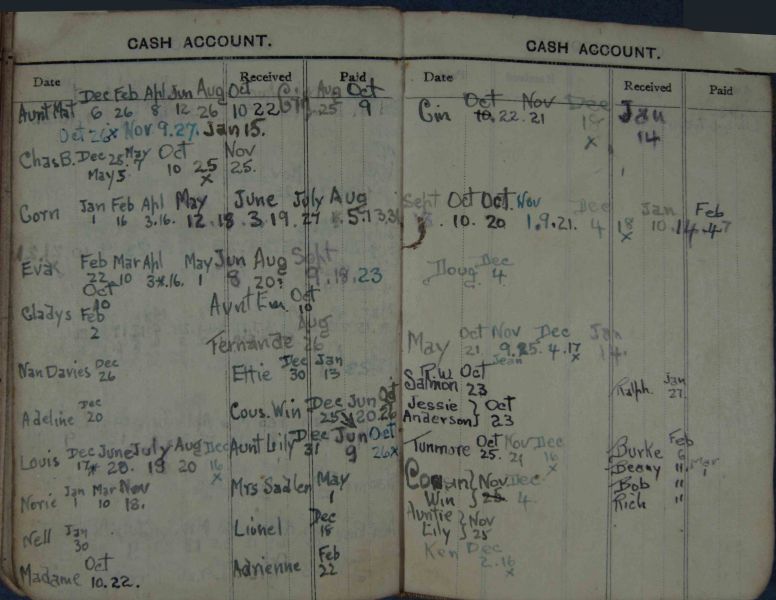 CASH ACCOUNT.
Date Received Paid
Dec Feb Ahl Jun Aug Oct Cin Aug Oct
Aunt Mat 6 26 8 12 26 10 22 25 9
Oct 26x Nov 9.27. Jan 15.
Chas B. Dec 25 May 7 Oct 10 25 x Nov 25.
May 5.
Jan Feb Ahl May June July Aug
Corn 1 16 3.16. 12.18 3.19.27
Feb Mar Ahl May Jun Aug Sept
Eva 22 10 16. 1 8 20? 9.18.23
Oct 10
Gladys Feb 2
Aunt Em Oct 10
Fernande Aug 26
Nan Davies Dec 26
Effie Dec 30 Jan 13
Adeline Dec 20
Cous. Win Dec 25 Jun 20 Oct 26
Louis Dec 17 June 20. July 19 Aug 20 Dec 16 x
Aunt Lily Dec 31 Jun 9 Oct 26x
Norie Jan 1 Mar 10 Nov 18.
Mrs Sadler May 1
Nell Jan 30
Lionel Dec 18
Madame Oct 10.22.
Adrienne Feb 22
CASH ACCOUNT.
Date Received Paid
Oct Nov Dec Jan
Cin 10. 22. 21 18 x 14
Sept Oct Oct. Nov Dec Jan Feb
10. 20 1.9.21. 4 18 x 10.14 .4.7
Doug Dec 4.
May Oct 21 Nov 9.25. Dec 4.17 x Jan 14.
Jean
R.W. Salmon Oct 23
Ralph. Jan 27.
Jessie Anderson } Oct 23
Tunmore Oct 25. Nov 21 Dec 16 x
Burke Feb 6
Beaay " Mar 1
Cowan Win } Nov 25 Dec 4
Bob "
Rich "
Auntie Lily } Nov 25
Ken Dec 2.16 x